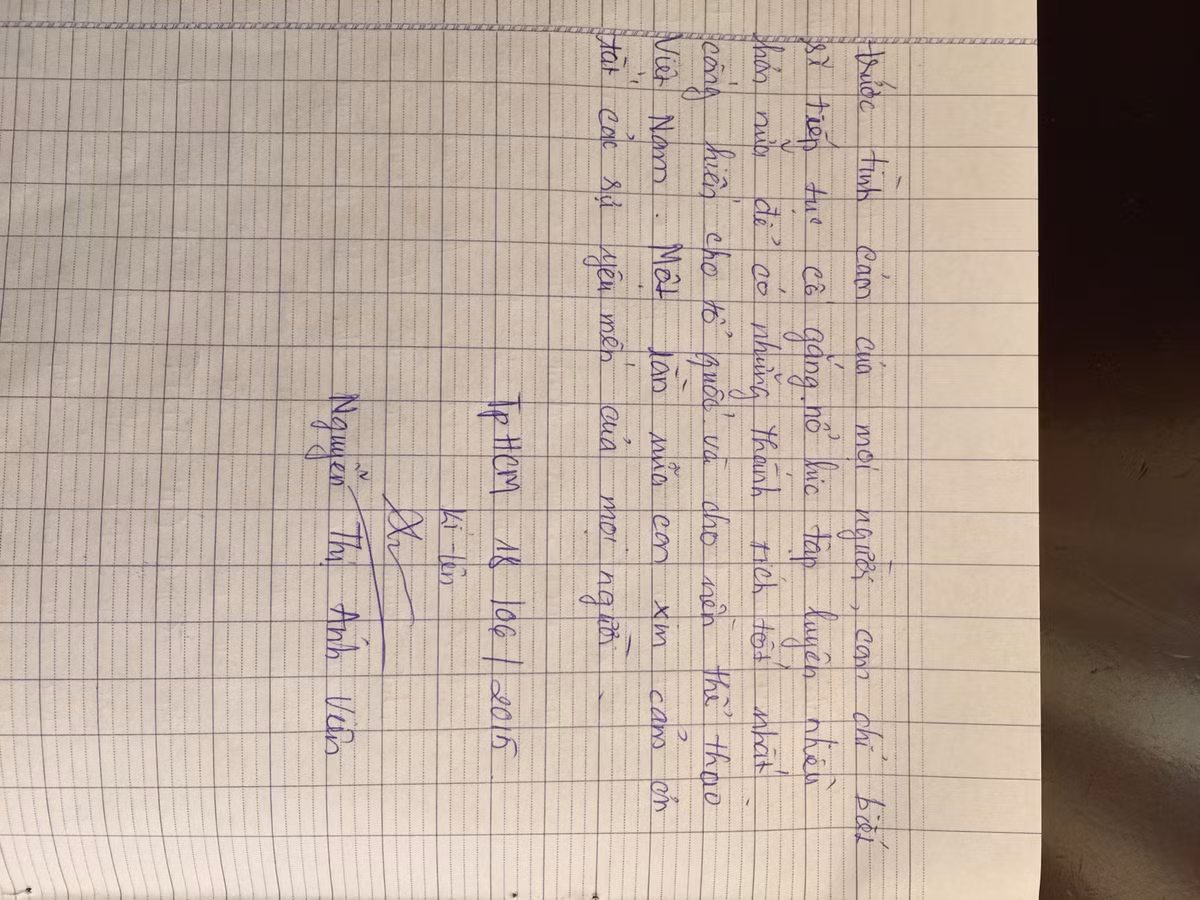 trước tình cảm của mọi người, con chỉ biết
sẽ tiếp tục cố gắng nổ lực tập luyện nhiều
hơn nữa để có những thành tích tốt nhất
cống hiến cho tổ quốc và cho nền thể thao
Việt Nam. Một lần nữa con xin cảm ơn
tất cả sự yêu mến của mọi người.
TpHCM 18/06/2015
kí tên
Nguyễn Thị Ánh Viên